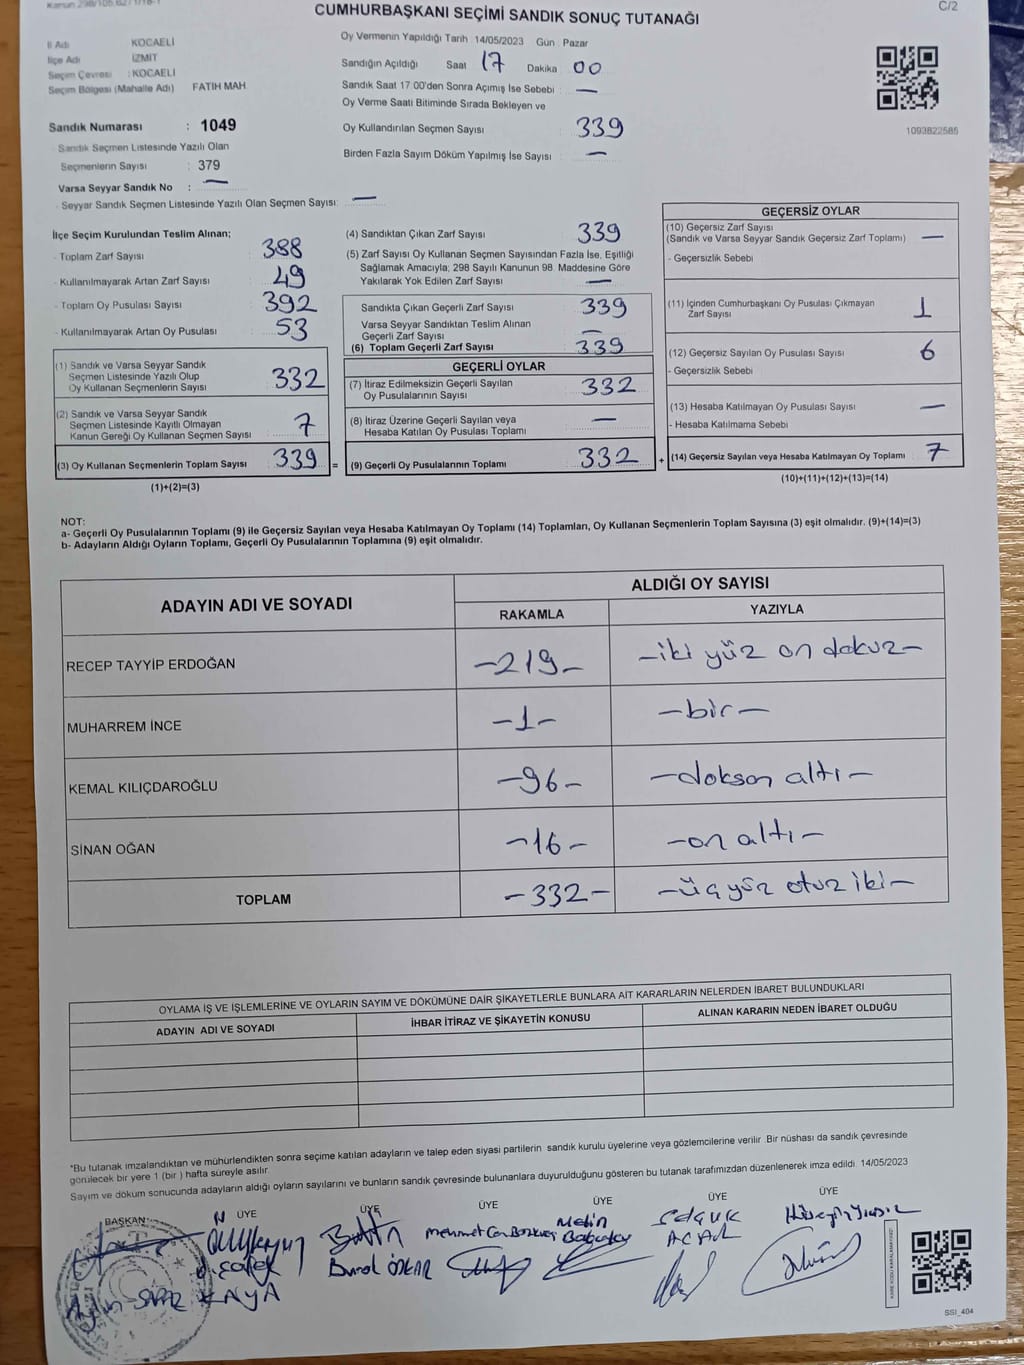 CUMHURBAŞKANI SEÇİMİ SANDIK SONUÇ TUTANAĞI
C/2
İl Adı KOCAELİ
İlçe Adı İZMİT
Seçim Çevresi : KOCAELİ
Seçim Bölgesi (Mahalle Adı) FATİH MAH.
Sandık Numarası : 1049
- Sandık Seçmen Listesinde Yazılı Olan
Seçmenlerin Sayısı : 379
Varsa Seyyar Sandık No : —
- Seyyar Sandık Seçmen Listesinde Yazılı Olan Seçmen Sayısı: —
Oy Vermenin Yapıldığı Tarih 14/05/2023 Gün Pazar
Sandığın Açıldığı Saat 17 Dakika 00
Sandık Saat 17.00'den Sonra Açımış İse Sebebi : —
Oy Verme Saati Bitiminde Sırada Bekleyen ve
Oy Kullandırılan Seçmen Sayısı 339
Birden Fazla Sayım Döküm Yapılmış İse Sayısı —
1093822585
İlçe Seçim Kurulundan Teslim Alınan;
- Toplam Zarf Sayısı 388
- Kullanılmayarak Artan Zarf Sayısı 49
- Toplam Oy Pusulası Sayısı 392
- Kullanılmayarak Artan Oy Pusulası 53
(1) Sandık ve Varsa Seyyar Sandık
Seçmen Listesinde Yazılı Olup
Oy Kullanan Seçmenlerin Sayısı 332
(2) Sandık ve Varsa Seyyar Sandık
Seçmen Listesinde Kayıtlı Olmayan
Kanun Gereği Oy Kullanan Seçmen Sayısı 7
(3) Oy Kullanan Seçmenlerin Toplam Sayısı 339 =
(1)+(2)=(3)
(4) Sandıktan Çıkan Zarf Sayısı 339
(5) Zarf Sayısı Oy Kullanan Seçmen Sayısından Fazla İse, Eşitliği
Sağlamak Amacıyla; 298 Sayılı Kanunun 98. Maddesine Göre
Yakılarak Yok Edilen Zarf Sayısı —
Sandıkta Çıkan Geçerli Zarf Sayısı 339
Varsa Seyyar Sandıktan Teslim Alınan
Geçerli Zarf Sayısı —
(6) Toplam Geçerli Zarf Sayısı 339
GEÇERLİ OYLAR
(7) İtiraz Edilmeksizin Geçerli Sayılan
Oy Pusulalarının Sayısı 332
(8) İtiraz Üzerine Geçerli Sayılan veya
Hesaba Katılan Oy Pusulası Toplamı —
(9) Geçerli Oy Pusulalarının Toplamı 332 +
GEÇERSİZ OYLAR
(10) Geçersiz Zarf Sayısı
(Sandık ve Varsa Seyyar Sandık Geçersiz Zarf Toplamı) —
- Geçersizlik Sebebi
(11) İçinden Cumhurbaşkanı Oy Pusulası Çıkmayan
Zarf Sayısı 1
(12) Geçersiz Sayılan Oy Pusulası Sayısı 6
- Geçersizlik Sebebi
(13) Hesaba Katılmayan Oy Pusulası Sayısı —
- Hesaba Katılmama Sebebi
(14) Geçersiz Sayılan veya Hesaba Katılmayan Oy Toplamı 7
(10)+(11)+(12)+(13)=(14)
NOT:
a- Geçerli Oy Pusulalarının Toplamı (9) ile Geçersiz Sayılan veya Hesaba Katılmayan Oy Toplamı (14) Toplamları, Oy Kullanan Seçmenlerin Toplam Sayısına (3) eşit olmalıdır. (9)+(14)=(3)
b- Adayların Aldığı Oyların Toplamı, Geçerli Oy Pusulalarının Toplamına (9) eşit olmalıdır.
ADAYIN ADI VE SOYADI
ALDIĞI OY SAYISI
RAKAMLA YAZIYLA
RECEP TAYYİP ERDOĞAN -219- -iki yüz on dokuz-
MUHARREM İNCE -1- -bir-
KEMAL KILIÇDAROĞLU -96- -doksan altı-
SİNAN OĞAN -16- -on altı-
TOPLAM -332- -üç yüz otuz iki-
OYLAMA İŞ VE İŞLEMLERİNE VE OYLARIN SAYIM VE DÖKÜMÜNE DAİR ŞİKAYETLERLE BUNLARA AİT KARARLARIN NELERDEN İBARET BULUNDUKLARI
ADAYIN ADI VE SOYADI İHBAR İTİRAZ VE ŞİKAYETİN KONUSU ALINAN KARARIN NEDEN İBARET OLDUĞU
*Bu tutanak imzalandıktan ve mühürlendikten sonra seçime katılan adayların ve talep eden siyasi partilerin sandık kurulu üyelerine veya gözlemcilerine verilir. Bir nüshası da sandık çevresinde
görülecek bir yere 1 (bir ) hafta süreyle asılır.
Sayım ve döküm sonucunda adayların aldığı oyların sayılarını ve bunların sandık çevresinde bulunanlara duyurulduğunu gösteren bu tutanak tarafımızdan düzenlenerek imza edildi. 14/05/2023
BAŞKAN ÜYE ÜYE ÜYE ÜYE ÜYE ÜYE
Burak ÖZKAR
Metin
Selçuk
ACAR
KAYA
SSI_404